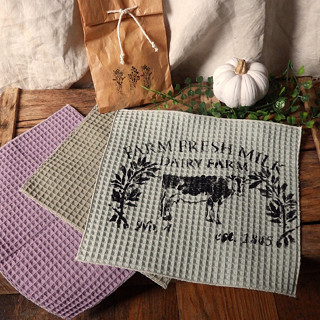 FARM FRESH MILK
DAIRY FARM
No. 1 est. 1845